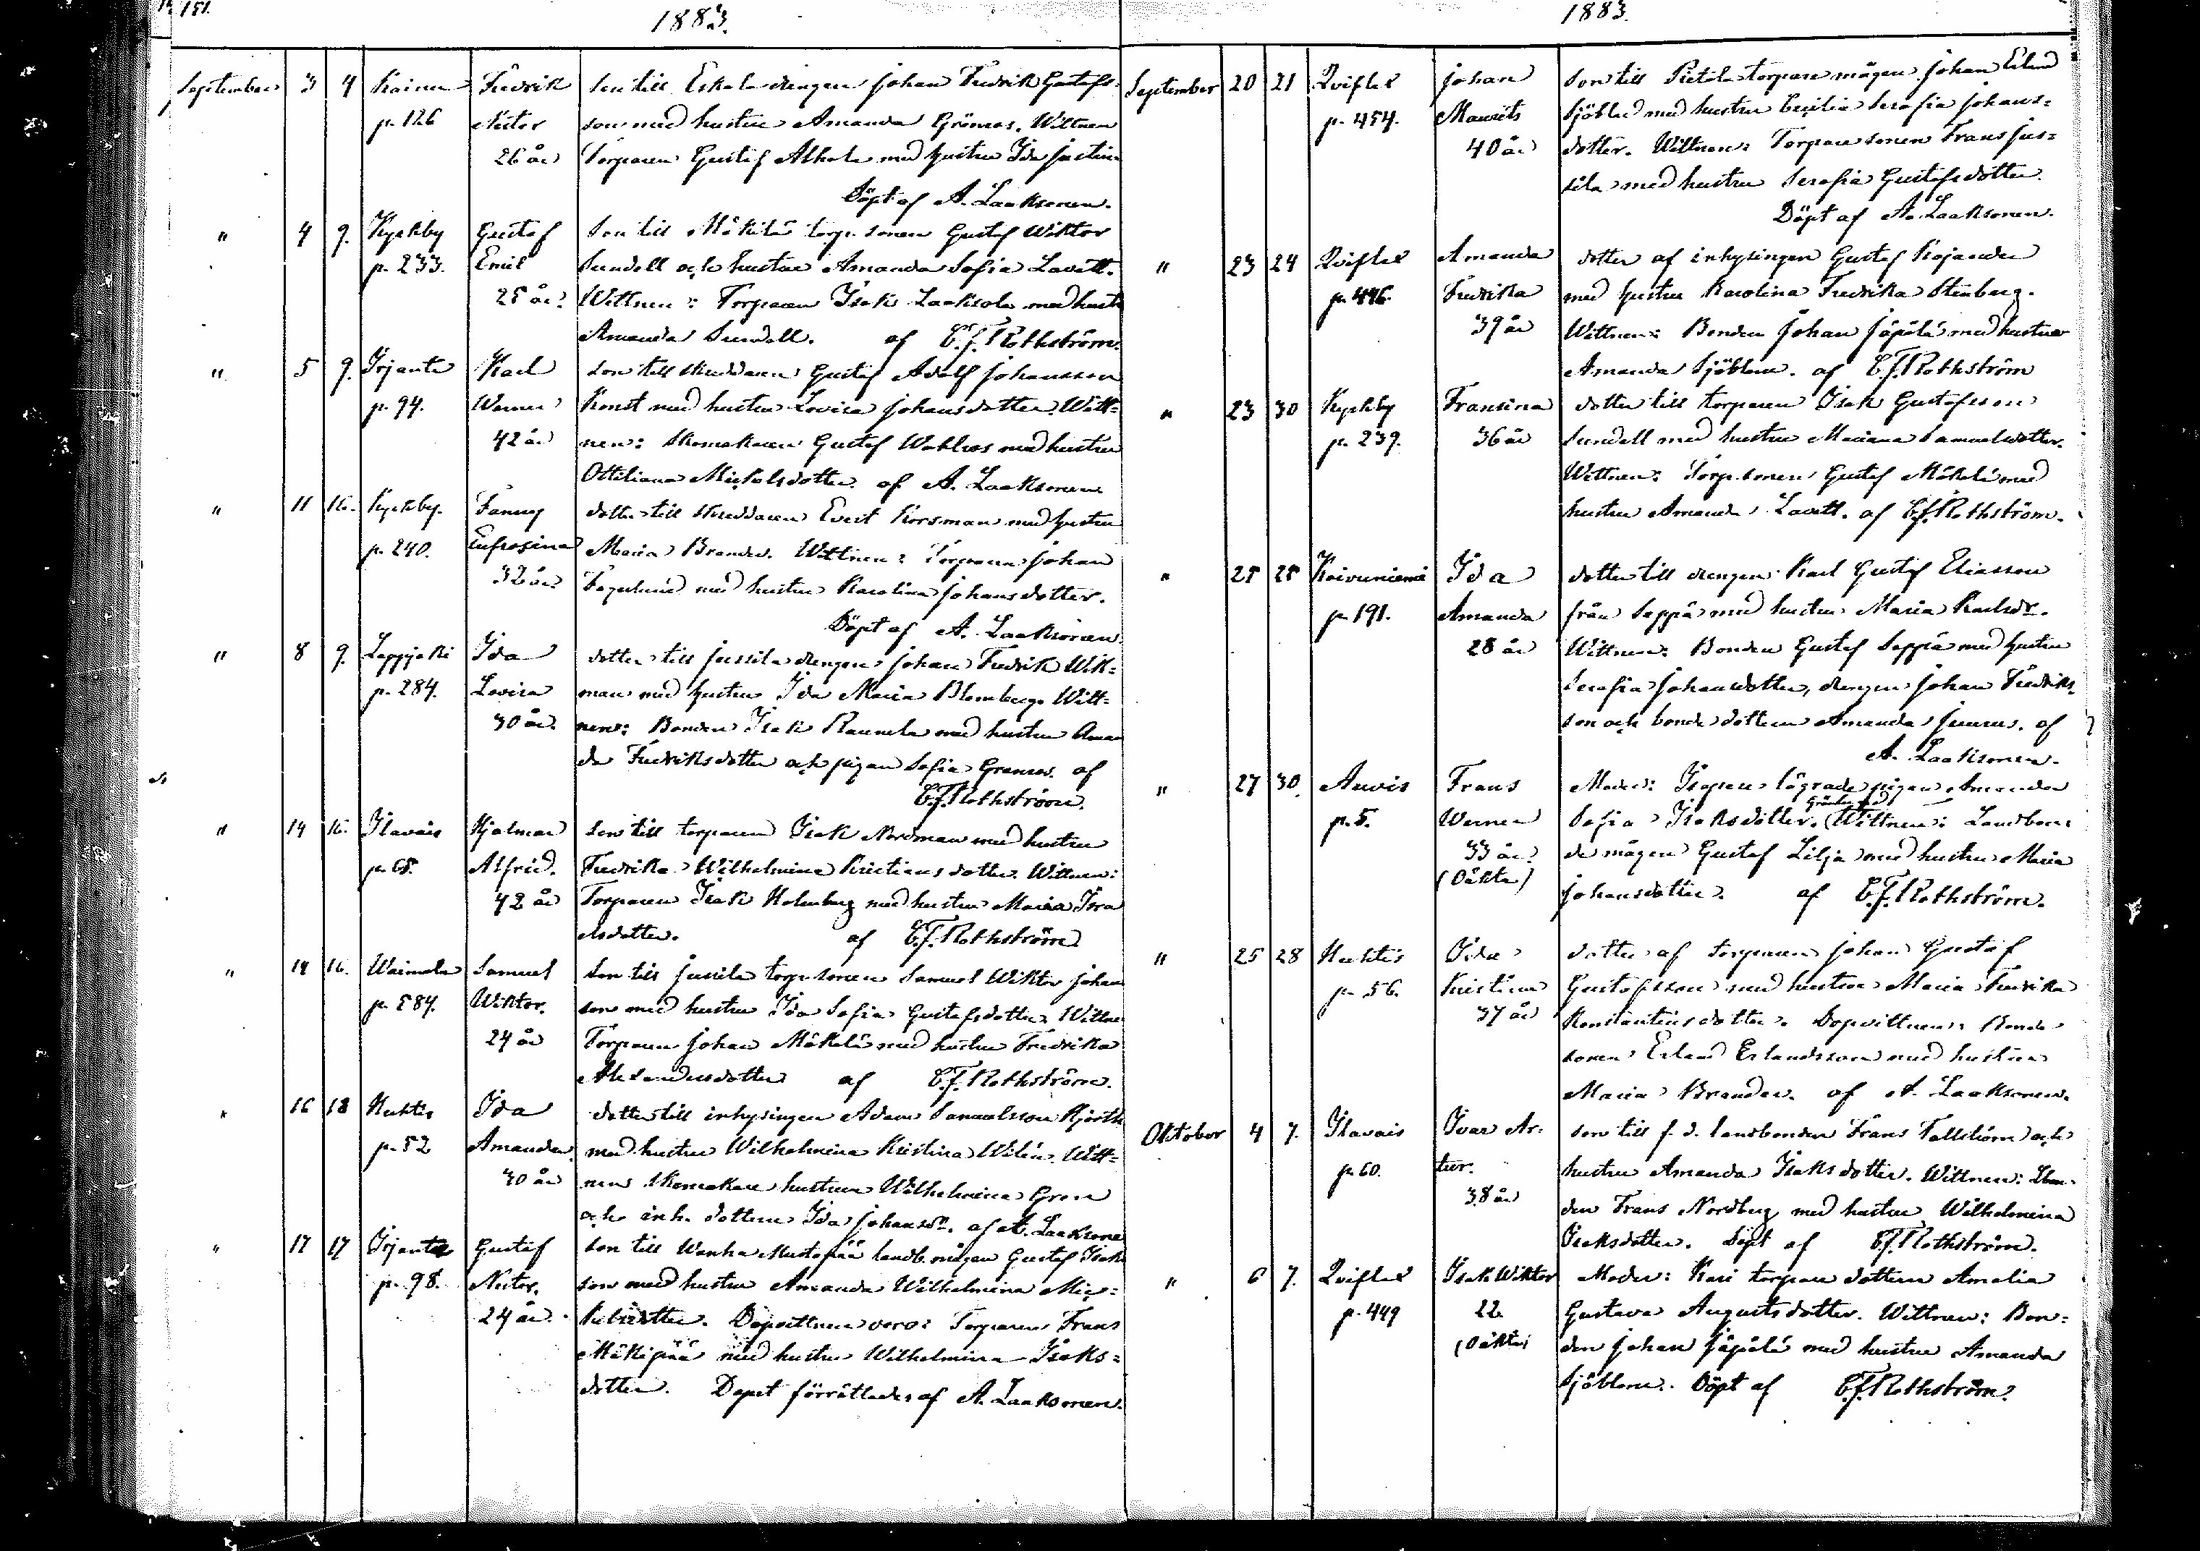 151.
1883.
September 3 4 Koinu Fredrik son till Eskola drengen Johan Fredrik Gustafs-
p. 126 Nestor son med hustru Amanda Grönros. Wittnen
26 år Torparen Gustaf Alhola med hustru Ida Justin
Döpt af A. Laaksonen.
" 4 9. Kyrkby Gustaf Son till Mäkilä torp. sonen Gustaf Wiktor
p. 233. Emil Sundell och hustru Amanda Sofia Lavett.
25 år. Wittnen: Torparen Isak Laaksola med hust
Amanda Sundell. af C.F. Rothström.
" 5 9. Irjante Karl son till skreddaren Gustaf Adolf Johansson
p. 94. Werner Konst med hustru Lovisa Johansdotter. Witt-
42 år nen: Skomakaren Gustaf Wahlros med hustru
Ottiliana Mickelsdotter. af A. Laaksonen
" 11 16. Kyrkby. Fanny dotter till skreddaren Evert Korsman med hustru
p. 240. Eufrosina Maria Brander. Wittnen: Torparen Johan
32 år Fagerlund med hustru Karolina Johansdotter.
Döpt af A. Laaksonen.
" 8 9. Lappijoki Ida dotter till Jussila drengen Johan Fredrik Wik-
p. 284. Lovisa man med hustru Ida Maria Blomberg. Witt-
30 år. nen: Bonden Isak Raunela med hustru Aman
da Fredriksdotter och pigan Sofia Granroos. af
C.F. Rothström.
" 14 16. Ilavais Hjalmar son till torparen Isak Nordman med hustru
p. 65. Alfrid. Fredrika Wilhelmina Kristiansdotter. Wittnen:
42 år Torparen Isak Holmberg med hustru Maria Isra
elsdotter. af C.F. Rothström
" 14 16. Waimala Samuel Son till Jussila torp. sonen Samuel Wiktor Johans
p. 584. Wiktor. son med hustru Ida Sofia Gustafsdotter. Wittne
24 år Torparen Johan Mäkelä med hustru Fredrika
Alexandersdotter af C.F. Rothström.
" 16 18 Huhtis Ida dotter till inhysingen Adam Samuelsson Hjorth
p. 52 Amanda. med hustru Wilhelmina Kristina Wilén. Witt-
30 år nen skomakare hustrun Wilhelmina Gron
och inh. dottern Ida Johansdr. af A. Laaksone
" 17 17 Irjante Gustaf son till Wanha Mustapää landb. mågen Gustaf Isak
p. 98. Nestor. son med hustru Amanda Wilhelmina Mic-
24 år. kelsdotter. Dopvittnen voro: Torparen Frans
Mäkipää med hustru Wilhelmina Isaks-
dotter. Dopet förrättades af A. Laaksonen.
1883.
September 20 21 Qviflax Johan son till Pietilä torpare mågen Johan Erland
p. 454. Maurits Sjöblad med hustru Cecilia Serafia Johans-
40 år dotter. Wittnen: Torpare sonen Frans Jus-
sila med hustru Serafia Gustafsdotter.
Döpt af A. Laaksonen.
" 23 24 Qviflax Amanda dotter af inhysingen Gustaf Kojander
p. 446. Fredrika med hustru Karolina Fredrika Stenberg.
39 år Wittnen: Bonden Johan Jäpälä med hustru
Amanda Sjöblom. af C.F. Rothström
" 23 30 Kyrkby Fransina dotter till torparen Isak Gustafsson
p. 239. 36 år Sundell med hustru Mariana Samuelsdotter.
Wittnen: Torp. sonen Gustaf Mäkelä med
hustru Amanda Lavett. af C.F. Rothström.
" 25 25 Koivuniemi Ida dotter till drengen Karl Gustaf Eliasson
p. 191. Amanda från Seppä med hustru Maria Karlsdr.
28 år Wittnen: Bonden Gustaf Seppä med hustru
Serafia Johansdotter, drengen Johan Fredriks-
son och bonde dottern Amanda Juurus. af
A. Laaksonen.
" 27 30. Auvis Frans Moder: lägrade pigan Amanda
p. 5. Werner Sofia Isaksdotter. Wittnen: Landbon-
33 år. de mågen Gustaf Lilja med hustru Maria
(Oäkta) Johansdotter. af C.F. Rothström.
" 25 28 Huhtis Ida dotter af torparen Johan Gustaf
p. 56. Kristina Gustafsson med hustru Maria Fredrika
37 år Konstantinsdotter. Dopvittnen: Bonde
sonen Erland Erlandsson med hustru
Maria Brander. af A. Laaksonen.
Oktober 4 7. Ilavais Ivar Ar- son till f. d. landbonden Frans Tallström och
p. 60. tur. hustru Amanda Isaksdotter. Wittnen: Lbon-
38 år den Frans Nordberg med hustru Wilhelmina
Isaksdotter. Döpt af C.F. Rothström.
" 6 7. Qviflax Isak Wiktor Moder: Kari torpare dottern Amalia
p. 449 22 Gustava Augustsdotter. Wittnen: Bon-
(Oäkta) den Johan Jäpälä med hustru Amanda
Sjöblom. Döpt af C.F. Rothström.